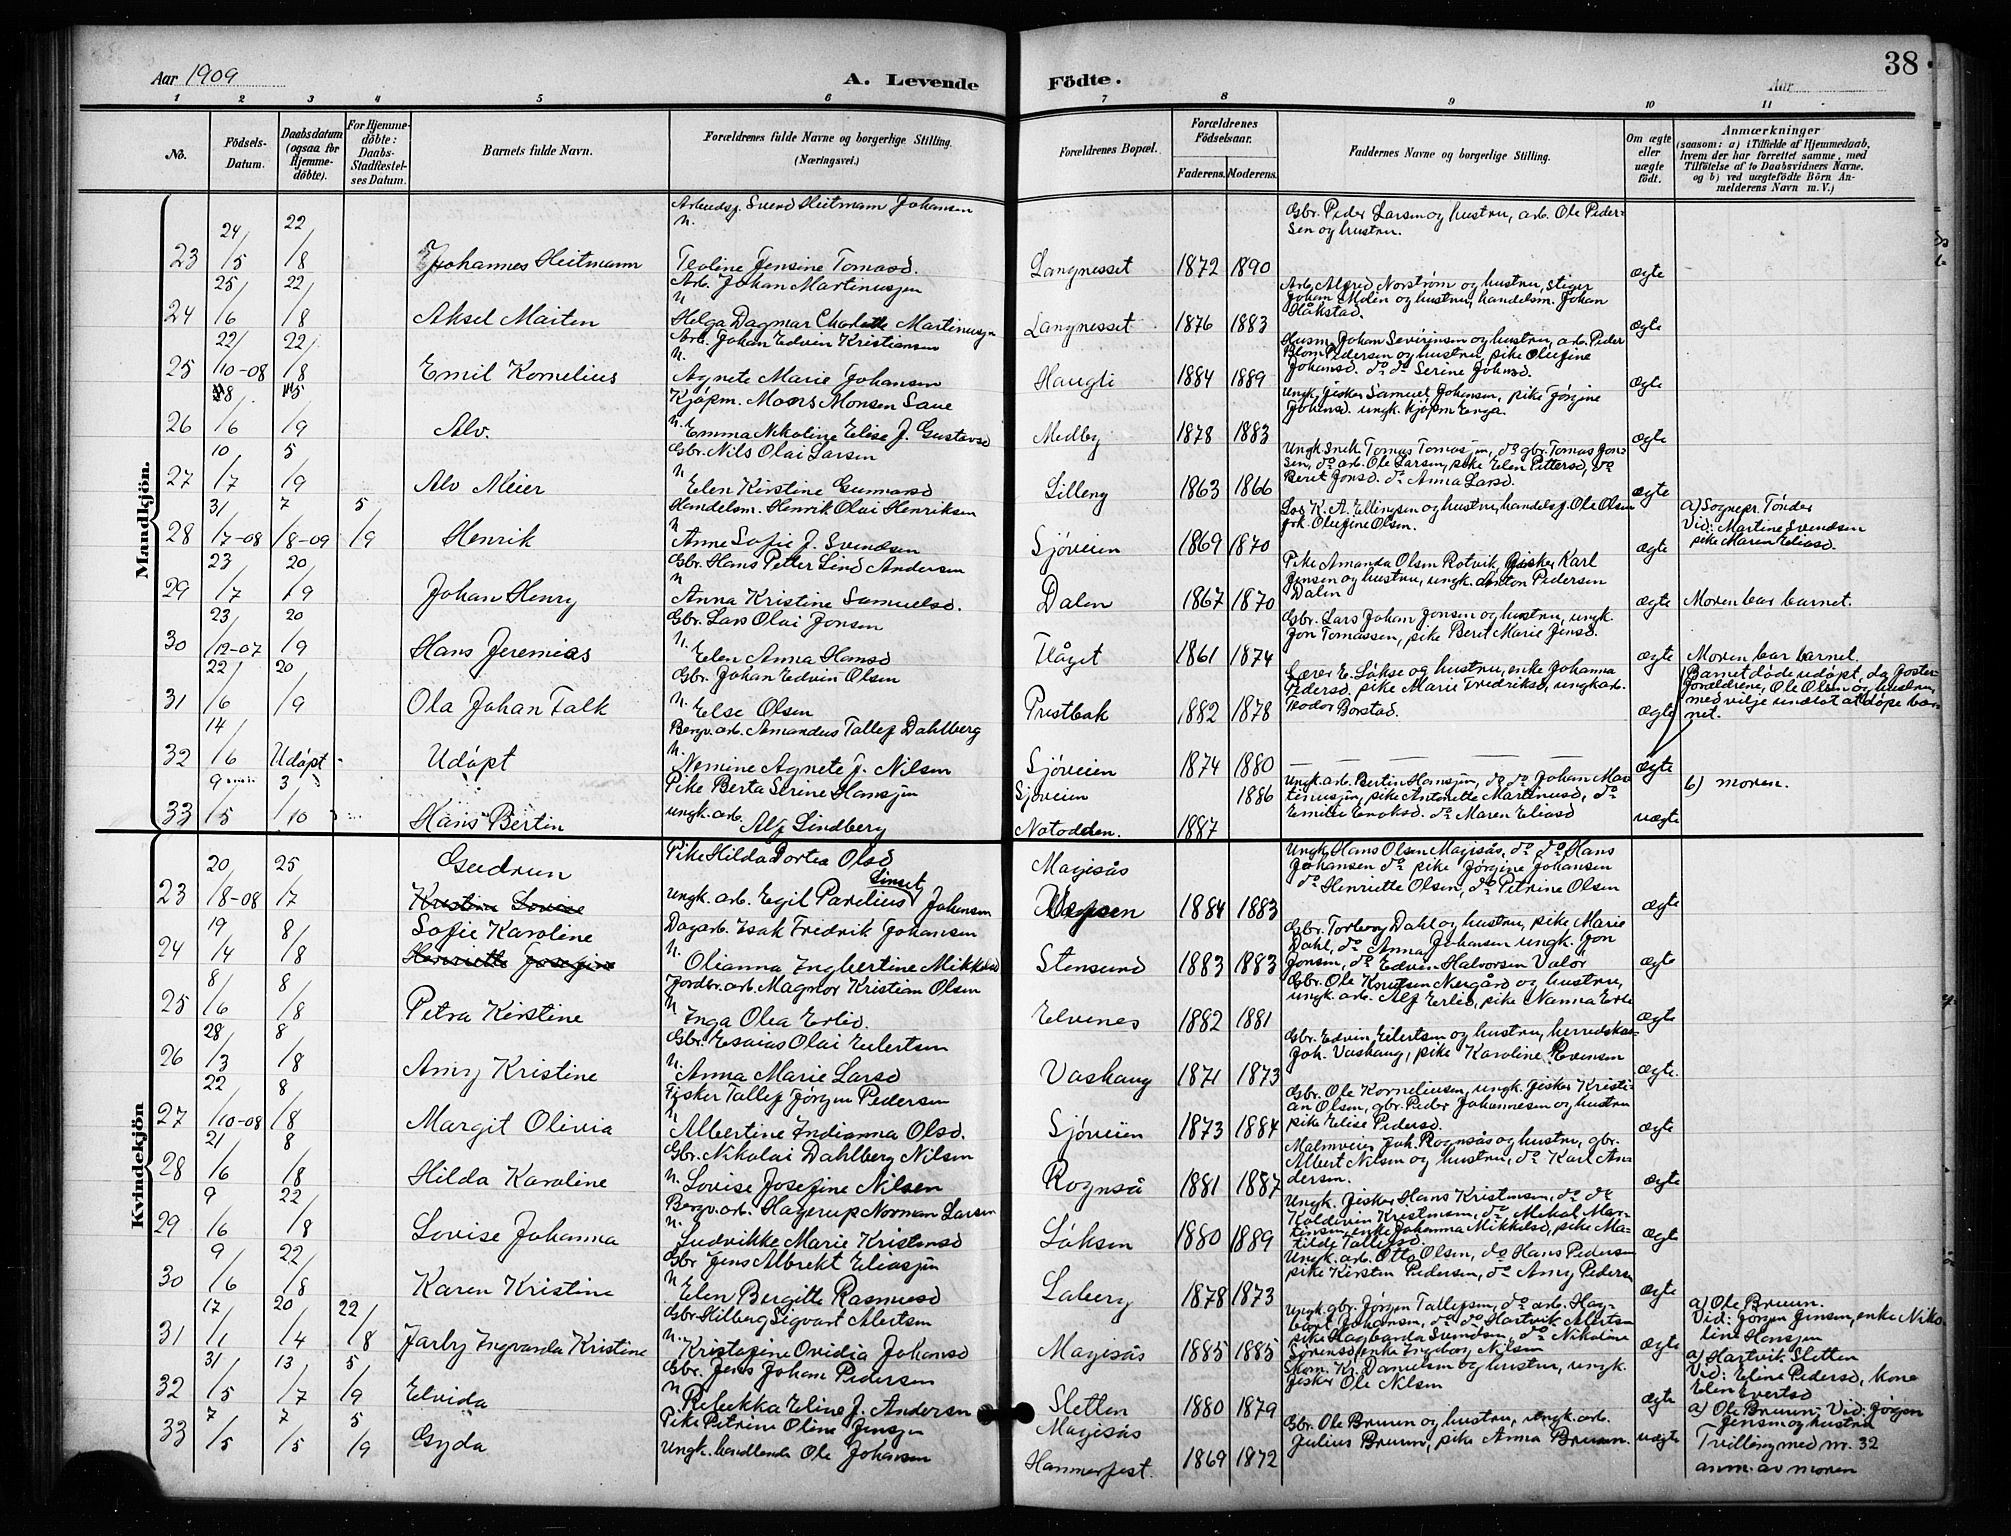 38
Aar 1909
A. Levende Födte.
Aar
1 2 3 4 5 6 7 8 9 10 11
No.
Födsels-Datum.
Daabsdatum (ogsaa for Hjemme-döbte).
For Hjemme-döbte: Daabs-Stadfæstel-ses Datum.
Barnets fulde Navn.
Forældrenes fulde Navne og borgerlige Stilling. (Næringsvei.)
Forældrenes Bopæl.
Forældrenes Födselsaar.
Faderens. Moderens.
Faddernes Navne og borgerlige Stilling.
Om ægte eller uægte födt.
Anmærkninger
(saasom: a) i Tilfælde af Hjemmedaab,
hvem der har forrettet samme, med
Tilföielse af to Daabsvidners Navne,
og b) ved uægtefödte Börn An-
melderens Navn m. V.)
Mandkjön.
23 24/5 22/8 Johannes Heitmann
Arbeidsf. Svend Heitmann Johansen
Teoline Jensine Tomasd.
Langnesset 1872 1890
Gbr. Peder Larsen og hustru, arb. Ole Peder-
sen og hustru.
ægte
24 25/6 22/8 Aksel Maiten
Arb. Johan Martinussen
Helga Dagmar Charlotte Martinusen
Langnesset 1876 1883
Arb. Alfred Norstrøm og hustru, stiger
Johan Moen og hustru, handelsm. Johan
Håkstad.
ægte
25 22/10-08 22/8 Emil Kornelius
Arb. Johan Edvin Kristiansen
Agnete Marie Johansen
Haugli 1884 1889
Husm. Johan Severinsen og hustru, arb. Peder
Blom Pedersen og hustru, pike Olufine
Johansd. do do Serine Johnsd.
ægte
26 28/6 5/9 Alv.
Kjøpm. Mons Monsen Saue
Emma Nikoline Elise J. Gustavsd
Medby 1878 1883
Ungk. fisker Samuel Johansen, pike Jørgine
Johansd. ungk. kjøpm Enga.
ægte
27 10/7 5/9 Alv Meier
Gbr. Nils Olai Larsen
Elen Kirstine Gunnarsd
Lilleng 1863 1866
Ungk Snek Tomas Tomassen, do gbr. Tomas Jon-
sen, do arb. Ole Larsen, pike Elen Pettersd, do
Berit Jonsd. do Anna Larsd.
ægte
28 31/7-08 7/8-09 5/9 Henrik
Handelsm. Henrik Olai Henriksen
Anne Sofie J. Svendsen
Sjøveien 1869 1870
Los K. A. Ellingsen og hustru, handelsf. Ole Olsen
frk. Olufine Olsen.
ægte
a) Sognepr. Tønder
Vid: Martine Svendsen
pike Maren Eliasd.
29 23/7 20/9 Johan Henry
Gbr. Hans Petter Lind Andersen
Anna Kristine Samuelsd.
Dalen 1867 1870
Pike Amanda Olsen Rotvik, fisker Karl
Jensen og hustru, ungk. Anton Pedersen
Dalen
ægte Moren bar barnet.
30 23/12-07 20/9 Hans Jeremias
Gbr. Lars Olai Jonsen
Elen Anna Hansd
Flåget 1861 1874
Gbr. Lars Johan Jonsen og hustru, ungk.
Jon Tomassen, pike Berit Marie Jensd.
ægte Moren bar barnet.
31 22/6 20/9 Ola Johan Falk
Gbr. Johan Edvin Olsen
Else Olsen
Prestbak 1882 1878
Lærer E. Løkse og hustru, enke Johanna
Pedersd. pike Marie Fredriksd, ungk arb.
Teodor Borstad.
ægte
Barnet døde udøpt, da foster-
forældrene, Ole Olsen og hustru,
med vilje undlot at døpe bar-
net.
32 14/6 Udøpt Udøpt
Bergv. arb. Amandus Tallef Dahlberg
Nemine Agnete J. Nilsen
Sjøveien 1874 1880
ægte
33 9/5 3/10 Hans Bertin
Pike Berta Serine Hansen
ungk. arb. Alf Lindberg
Sjøveien 1886
Notodden. 1887
Ungk. arb. Bertin Hansen, do do Johan Mar-
tinusen, pike Antonette Martinusd, do
Emilie Enoksd. do Maren Eliasd
uægte b) moren.
Kvindekjön
23 20/8-08 25/7 Gudrun
Kristine Lovise
Pike Hilda Dortea Olsd
ungk. arb. Egil Parelius Linset Johansen
Magisås
1884 1883
Ungk Hans Olsen Magisås, do do Hans
Johansen do pike Jørgine Johansen
do Henriette Olsen, do Petrine Olsen
ægte
24 19/4 8/8 Sofie Karoline
Henriette Josefine
Dagarb. Esak Fredrik Johansen
Olianna Ingbertine Mikkelsd
Stensund 1883 1883
Gbr. Torberg Dahl og hustru, pike Marie
Dahl, do Anna Johansen ungk. Jon
Jonsen, do Edvin Halvorsen Valør
ægte
25 8/6 8/8 Petra Kirstine
Jorder. arb. Magnor Kristian Olsen
Inga Olea Erlid.
Elvenes 1882 1881
Gbr. Ole Knutsen Nergård og hustru,
ungk. arb. Alf Erlid, pike Nanna Erli
ægte
26 28/3 8/8 Amy Kristine
Gbr. Esaias Olai Eilertsen
Anna Marie Larsd
Vashaug 1871 1873
Gbr. Edvin Eilertsen og hustru, herredskas-
Joh. Vashaug, pike Karoline Evensen
ægte.
27 22/10-08 8/8 Margit Olivia
Fisker Tallef Jørgen Pedersen
Albertine Indianna Olsd.
Sjøveien 1873 1884
Gbr. Ole Korneliusen, ungk. fisker Kristi-
an Olsen, gbr. Peder Johannesen og hustru
pike Elise Pedersd.
ægte
28 21/6 8/8 Hilda Karoline
Gbr. Nikolai Dahlberg Nilsen
Lovise Josefine Nilsen
Rognså 1881 1887
Malmveier Joh. Rognsås og hustru, gbr.
Albert Nilsen og hustru, do Karl An-
dersen.
ægte
29 9/6 22/8 Lovise Johanna
Bergv. arb. Hagerup Norman Larsen
Ludvikke Marie Kristensd
Løksen 1880 1889
Ungk. fisker Hans Kristensen, do do
Koldevin Kristensen, do Mikal Mar-
tinsen, enke Johanna Mikkelsd, pike Ma-
tilde Tallefsd.
ægte
30 9/6 22/8 Karen Kristine
Gbr Jens Albrekt Eliassen
Elen Bergitte Rasmusd
Laberg 1878 1873
Ungk. arb. Otto Olsen, do Hans Pedersen
pike Kirsten Pedersen, do Amy Pedersen
ægte
31 17/1 20/4 22/8 Jarby Ingvarda Kristine
Gbr Hilberg Sigvart Alertsen
Kristofine Ovidia Johansd
Magisås 1885 1885
Ungk. gbr. Jørgen Tallefsen, do arb. Hag-
bart Johansen, do do Hartvik Alertsen
pike Hagbarda Svendsen, do Nikoline
Sørensd, enke Ingeborg Nilsen
ægte
a) Ole Bruun.
Vid: Jørgen Jensen, enke Niko-
line Hansen
32 31/5 13/7 5/9 Elvida
Gbr. Jens Johan Pedersen
Rebekka Eline J. Andersen
Sletten 1880 1879
Skom. Kr. Danielsen og hustru, ungk.
fisker Ole Nilsen
ægte
a) Hartvik Sletten
Vid: Eline Pedersd, kone
Elen Evertsd
33 7/5 7/5 5/9 Gyda
Pike Petrine Oline Jensen
Ungk. handlende Ole Johansen
Magisås
Hammerfest. 1869 1872
Gbr. Ole Bruun og hustru, ungk. arb.
Julius Bruun, pike Anna Bruun.
uægte
a) Ole Bruun. Vid: Jørgen
Jensen og hustru
Tvilling med nr. 32
anm. av moren